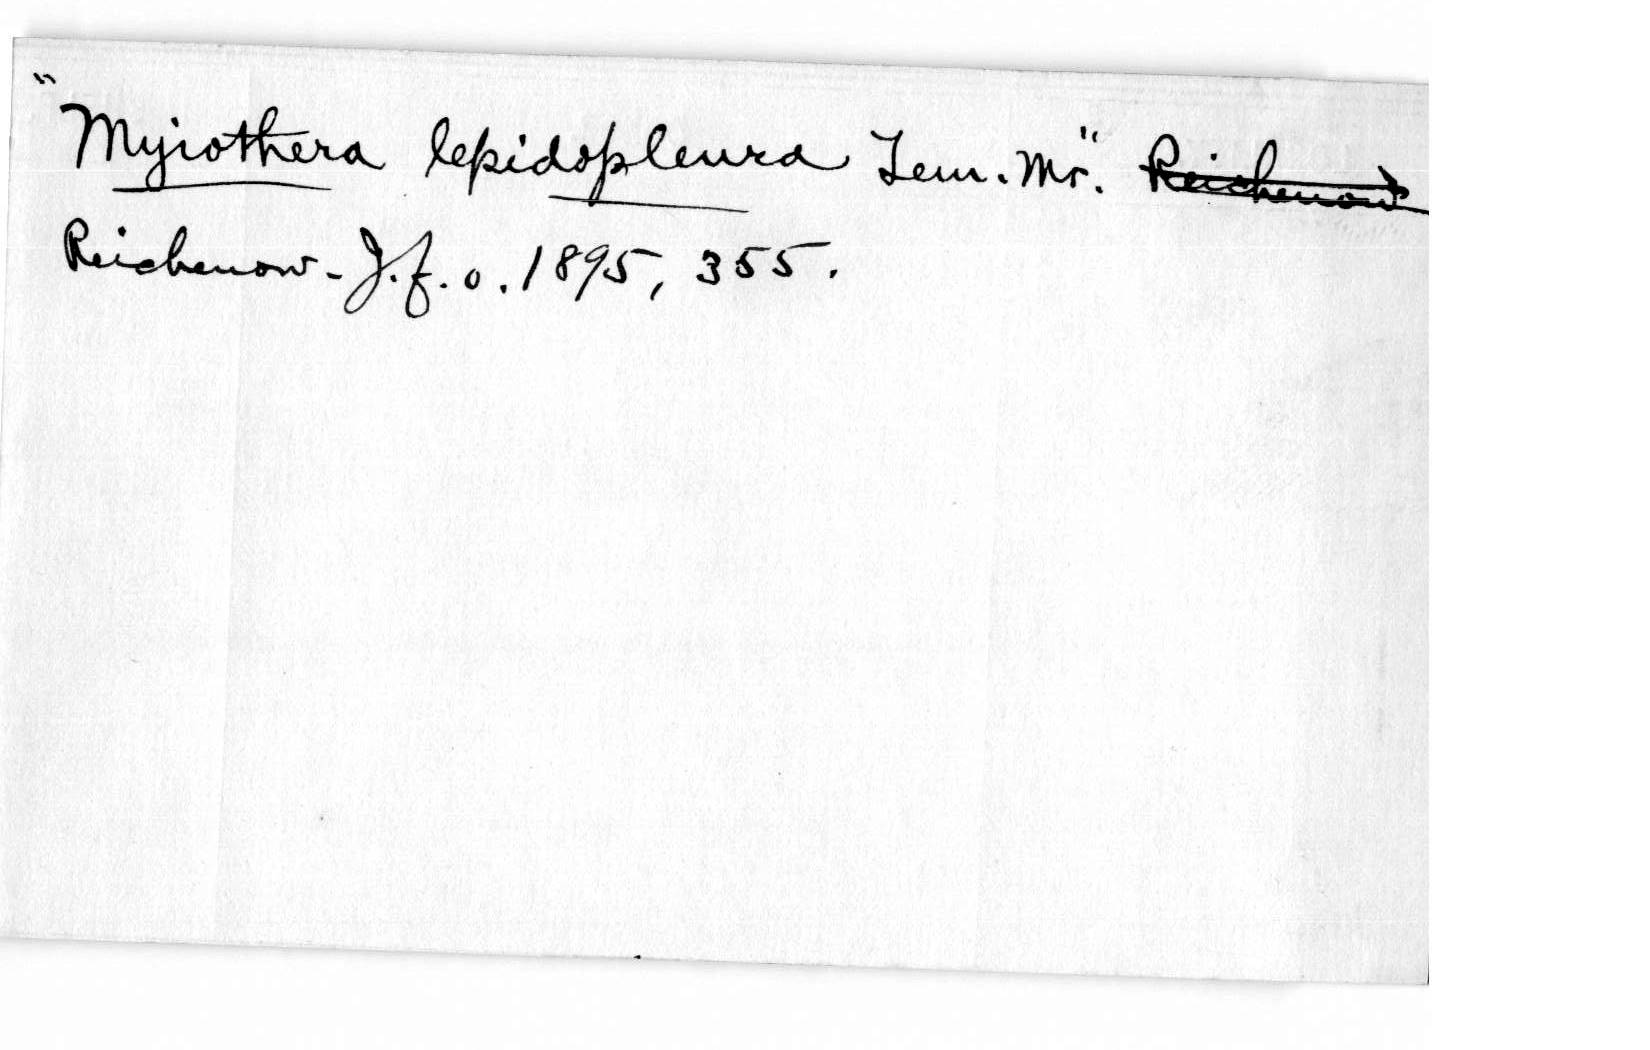 "Myiothera lepidopleura Tem. Mr." Reichenow
Reichenow - J.f.o. 1895, 355.